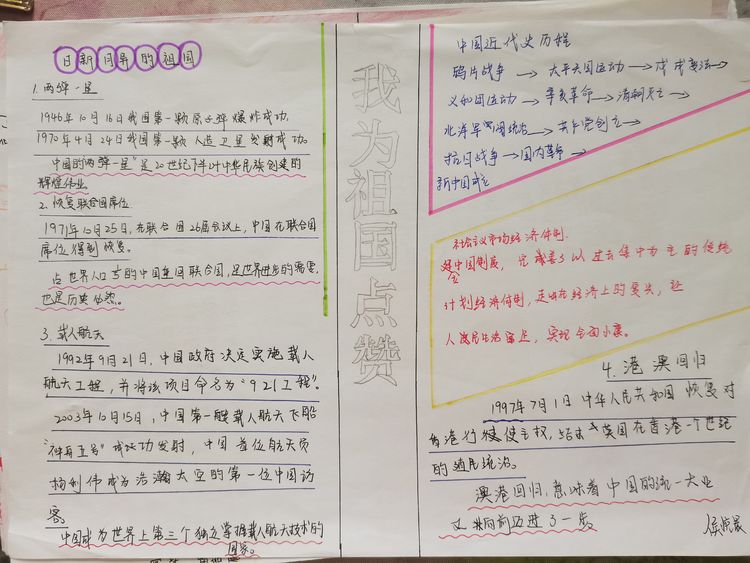 日新月异的祖国
1. 两弹一星
1946年10月16日我国第一颗原子弹爆炸成功.
1970年4月24日我国第一颗人造卫星发射成功.
中国的两弹一星"是20世纪下半叶中华民族创建的
辉煌伟业。
2. 恢复联合国席位
1971年10月25日,在联合国26届会议上,中国在联合国
席位得到恢复。
占世界人口的中国重返联合国,是世界进步的需要,
也是历史必然。
3. 载人航天
1992年9月21日,中国政府决定实施载人
航天工程,并将该项目命名为"921工程"。
2003年10月15日,中国第一艘载人航天飞船
"神舟五号"成功发射,中国首位航天员
杨利伟成为浩瀚太空的第一位中国访
客。
中国成为世界上第三个独立掌握载人航天技术的
国家。
我为祖国点赞
中国近代史历程
鸦片战争 → 太平天国运动 → 戊戌变法 →
义和团运动 → 辛亥革命 → 清朝灭亡 →
北洋军阀统治 → 共产党创立 →
抗日战争 → 国内革命 →
新中国成立
社会主义市场经济体制.
是中国制度,完成了以过去集中为主的传统
计划经济体制,走出在经济上的
人民生活富足,实现全面小康。
4. 港澳回归
1997年7月1日中华人民共和国恢复对
香港行使主权,结束英国在香港一个世纪
的殖民统治。
澳港回归,意味着中国的统一大业
又共同前迈进了一步。